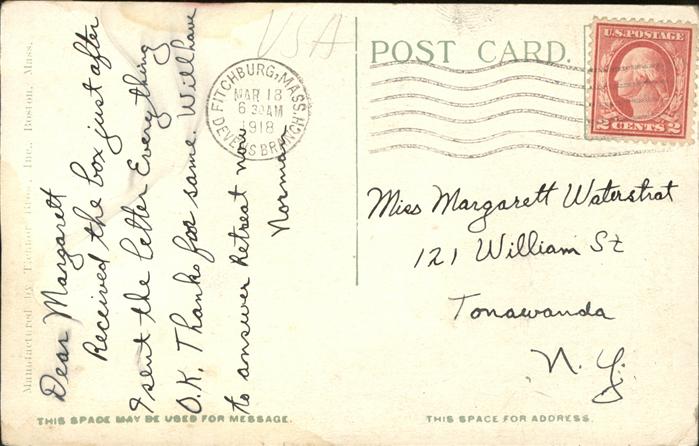 USA
POST CARD.
U.S. POSTAGE
2 CENTS 2
FITCHBURG, MASS.
MAR 18
6 30 AM
1918
DEVENS BRANCH
Dear Margarett
Received the box just after
I sent the letter Everything
O.K. Thanks for same. Will have
to answer Retreat now
Norman
Miss Margarett Waterstrat
121 William St
Tonawanda
N.Y.
Manufactured by Tichnor Bros., Inc., Boston, Mass.
THIS SPACE MAY BE USED FOR MESSAGE.
THIS SPACE FOR ADDRESS.